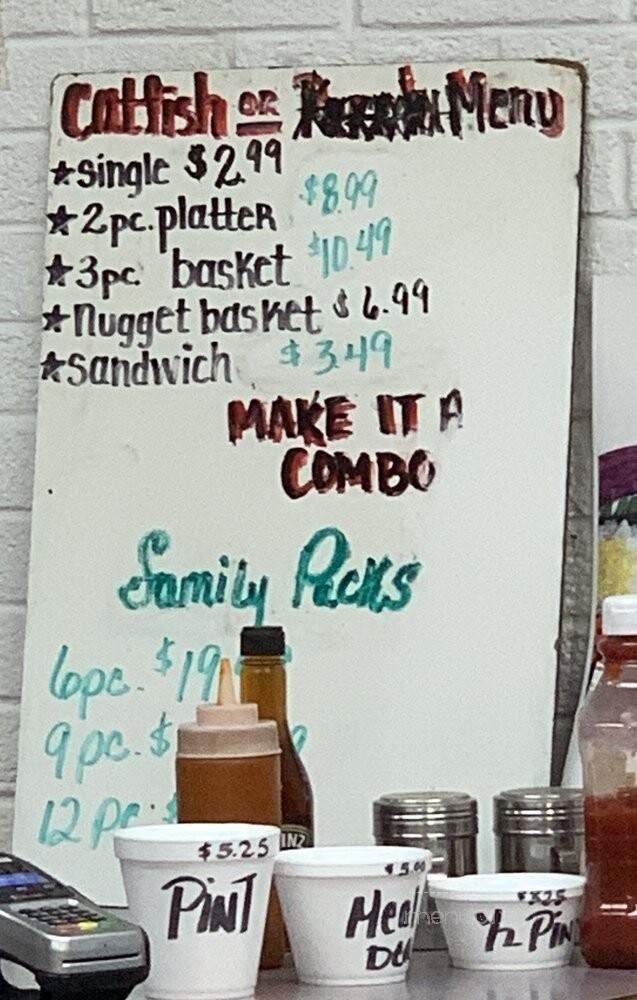 Catfish OR Menu
★single $2.99
★2pc. platter $8.99
★3pc. basket $10.49
★nugget basket $6.99
★sandwich $3.49
MAKE IT A
COMBO
Family Packs
6pc. $19
9pc. $
12 pc. $
INZ
$5.25
PINT
Meal
1/2 PIN